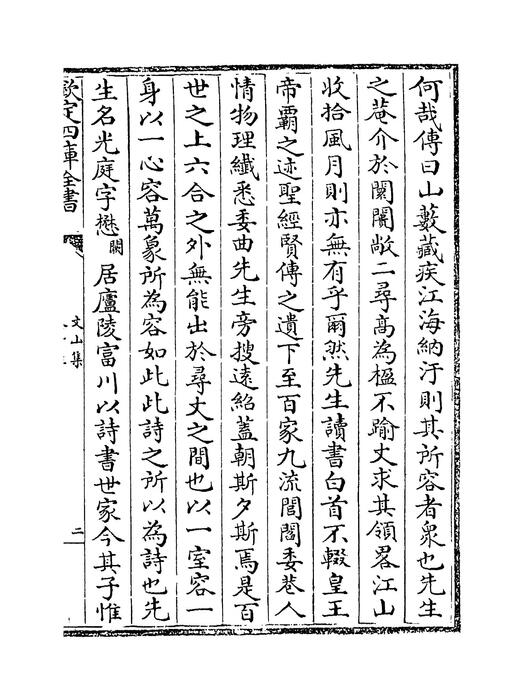 何哉傳曰山藪藏疾江海納汙則其所容者衆也先生
之菴介於闤闠敞二尋髙為楹不踰丈求其領畧江山
收拾風月則亦無有乎爾然先生讀書白首不輟皇王
帝霸之迹聖經賢傳之遺下至百家九流閭閻委巷人
情物理纖悉委曲先生旁搜逺紹蓋朝斯夕斯焉是百
世之上六合之外無能出於尋丈之間也以一室容一
身以一心容萬象所為容如此此詩之所以為詩也先
生名光庭字懋闕居廬陵富川以詩書世家今其子惟
欽定四庫全書
文山集
二